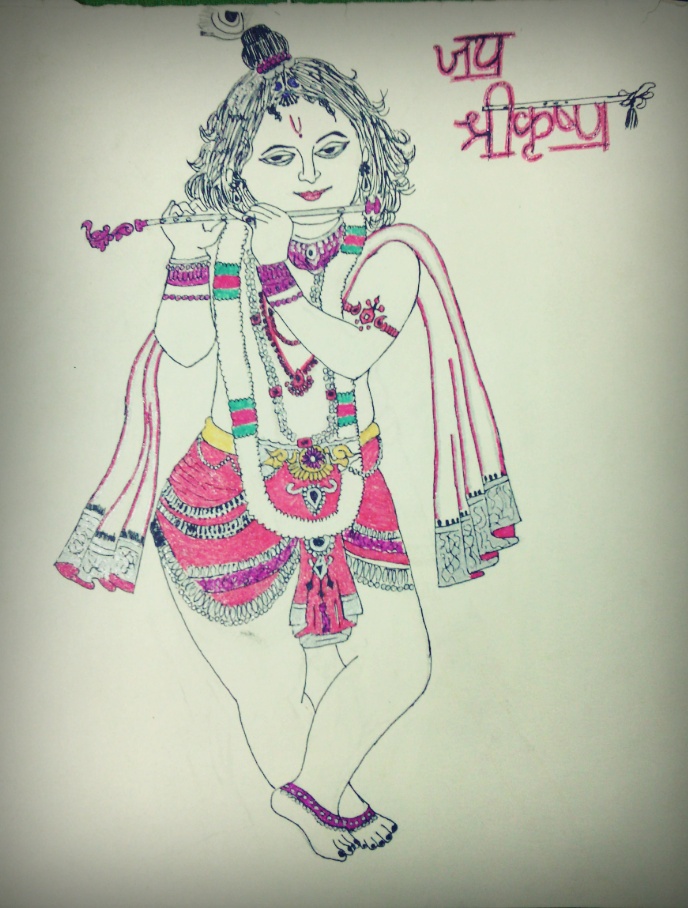 जय
श्रीकृष्ण